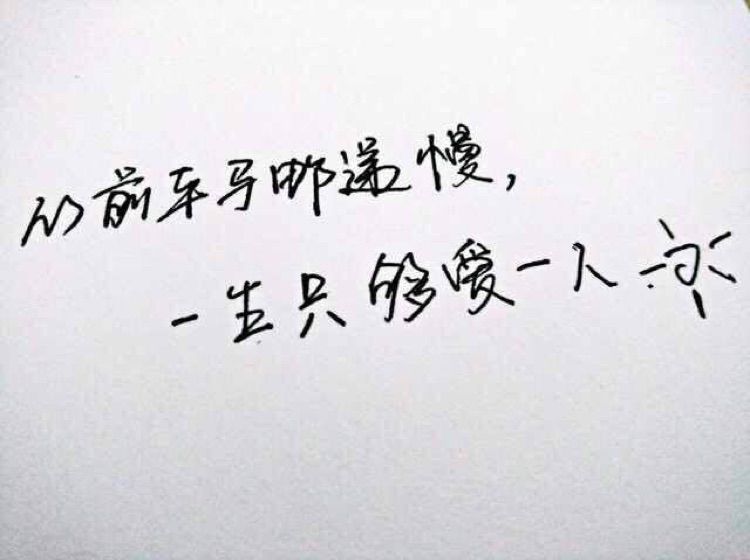 以前车马邮递慢,
一生只够爱一人